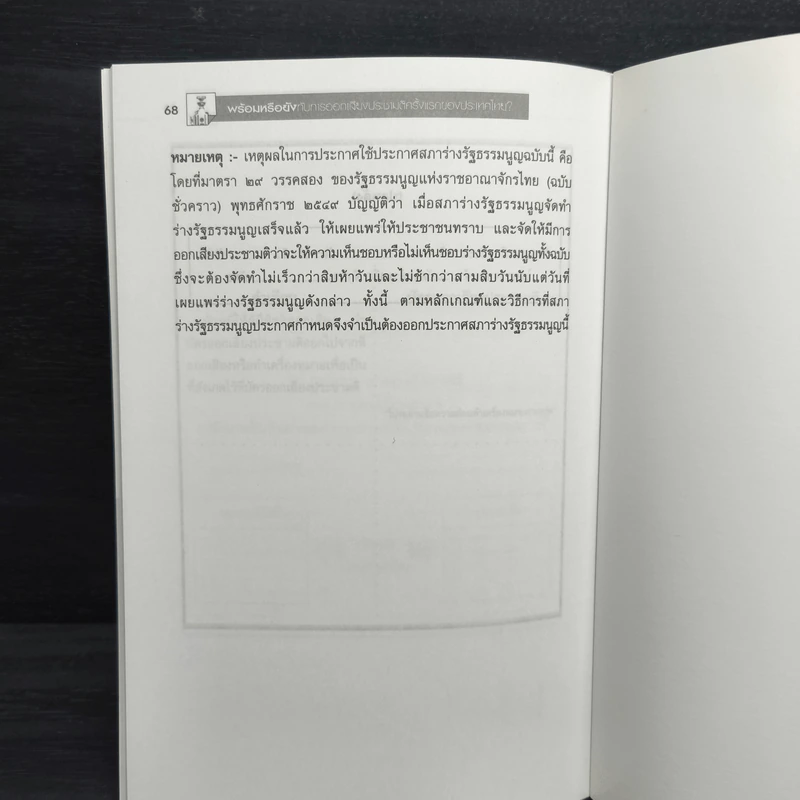 68
พร้อมหรือยังกับการออกเสียงประชามติครั้งแรกของประเทศไทย?
หมายเหตุ :- เหตุผลในการประกาศใช้ประกาศสภาร่างรัฐธรรมนูญฉบับนี้ คือ
โดยที่มาตรา ๒๙ วรรคสอง ของรัฐธรรมนูญแห่งราชอาณาจักรไทย (ฉบับ
ชั่วคราว) พุทธศักราช ๒๕๔๙ บัญญัติว่า เมื่อสภาร่างรัฐธรรมนูญจัดทำ
ร่างรัฐธรรมนูญเสร็จแล้ว ให้เผยแพร่ให้ประชาชนทราบ และจัดให้มีการ
ออกเสียงประชามติว่าจะให้ความเห็นชอบหรือไม่เห็นชอบร่างรัฐธรรมนูญทั้งฉบับ
ซึ่งจะต้องจัดทำไม่เร็วกว่าสิบห้าวันและไม่ช้ากว่าสามสิบวันนับแต่วันที่
เผยแพร่ร่างรัฐธรรมนูญดังกล่าว ทั้งนี้ ตามหลักเกณฑ์และวิธีการที่สภา
ร่างรัฐธรรมนูญประกาศกำหนดจึงจำเป็นต้องออกประกาศสภาร่างรัฐธรรมนูญนี้